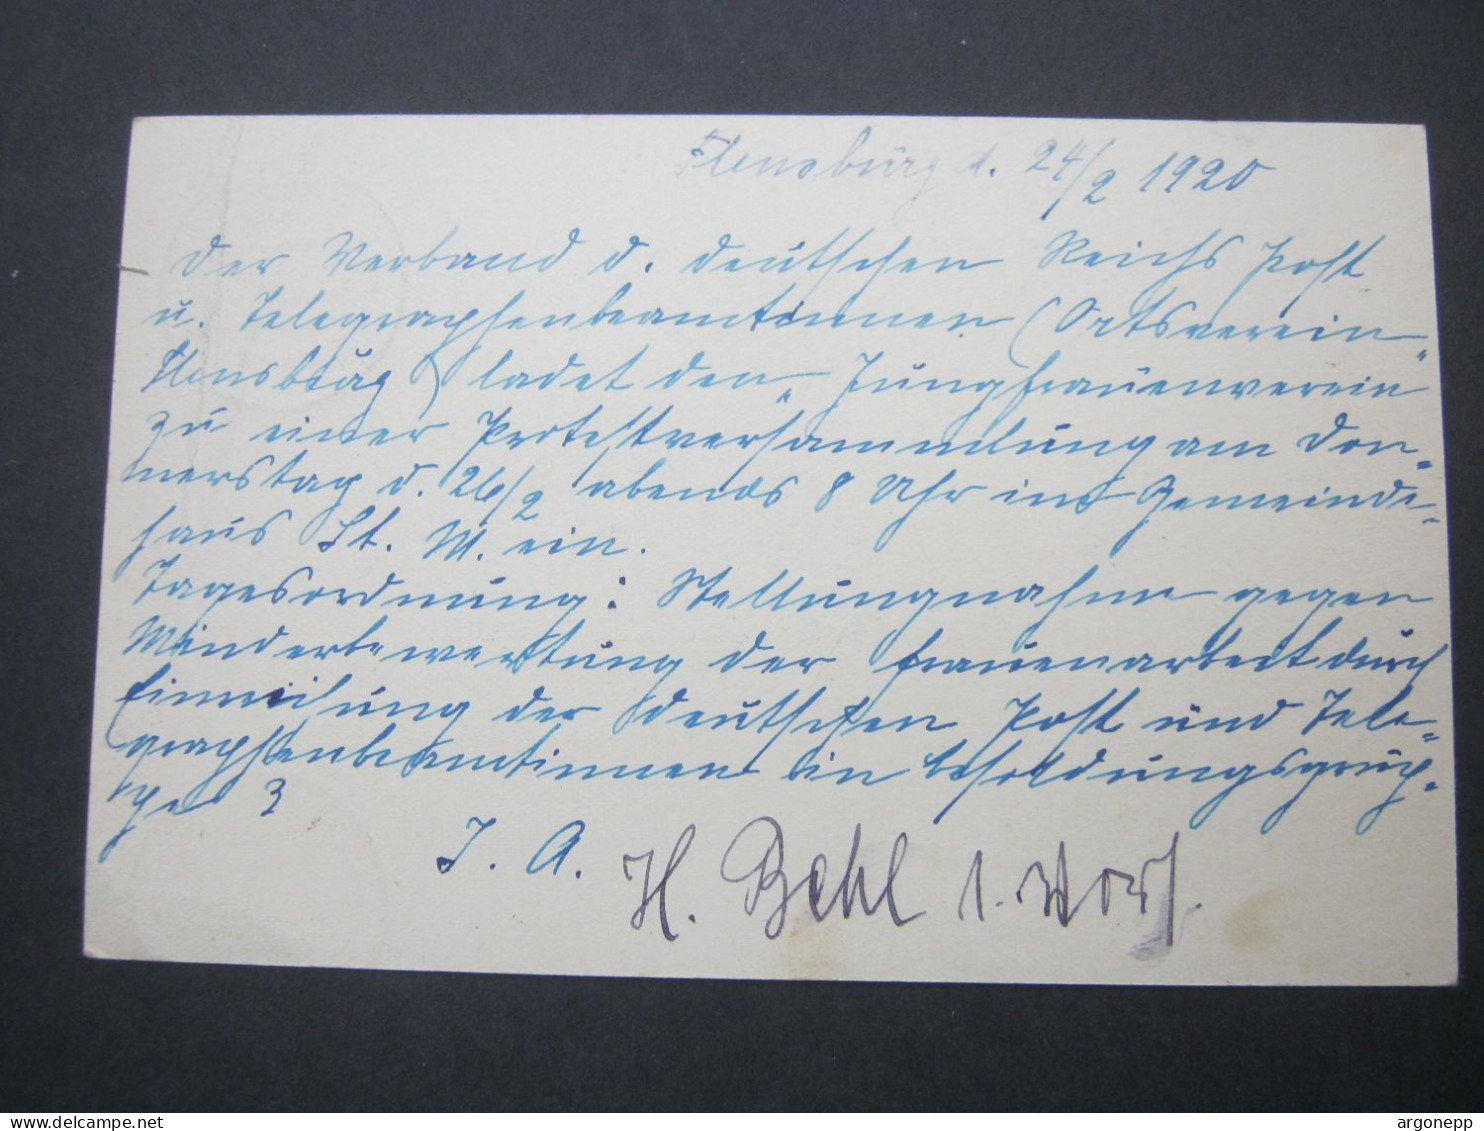 Flensburg d. 24/2 1920
Der Verband d. deutschen Reichs Post
u. Telegraphenbeamtinnen (Ortsverein
Flensburg) ladet den „Jungfrauenverein"
zu einer Protestversammlung am Don-
nerstag d. 26/2 abends 8 Uhr ins Gemeinde-
haus St. M. ein.
Tagesordnung: Stellungnahme gegen
Minderbewertung der Frauenarbeit durch
Einreihung der deutschen Post und Tele-
graphenbeamtinnen in Besoldungsgrup-
pe 3
I. A. H. Behl 1. Vors.
argonepp